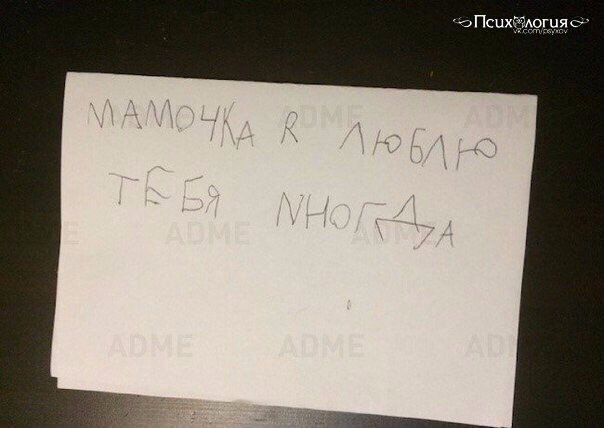 Психология
vk.com/psyxov
МАМОЧКА Я ЛЮБЛЮ
ТЕБЯ ИНОГДА
ADME ADME
ADME ADME ADME
ADME ADME AD